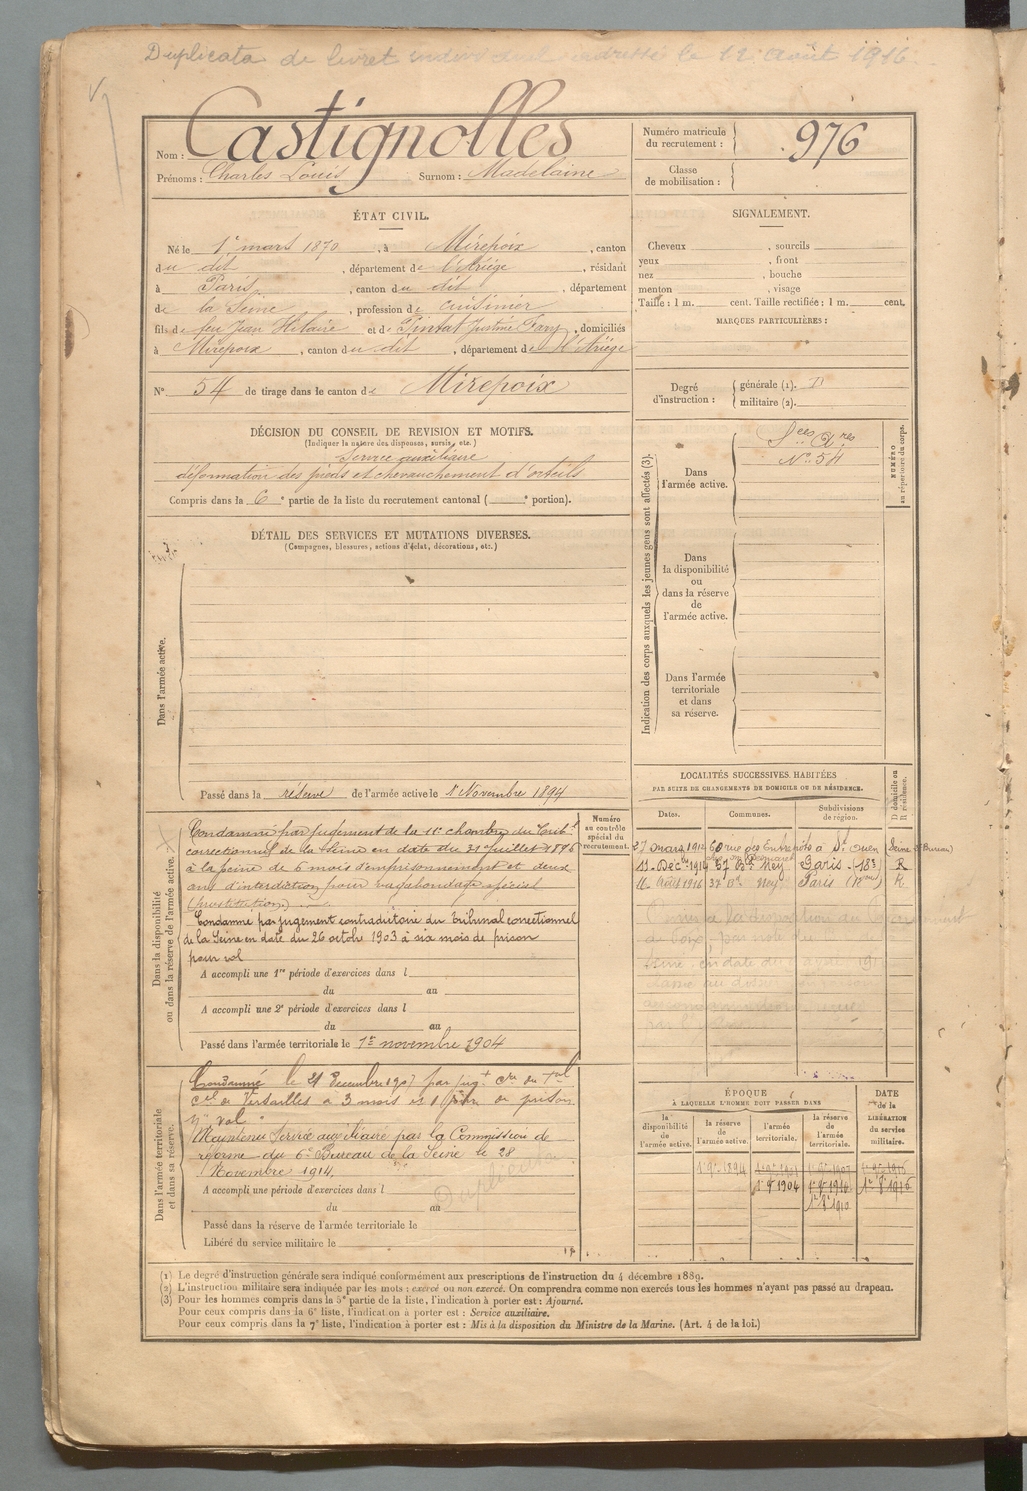 Duplicata de livret individuel adressé le 12 Août 1916
Nom : Castignolles
Prénoms : Charles Louis Surnom : Madelaine
Numéro matricule du recrutement : 976
Classe de mobilisation :
ÉTAT CIVIL.
Né le 1er mars 1870, à Mirepoix, canton
du dit, département de l'Ariège, résidant
à Paris, canton du dit, département
de la Seine, profession de cuisinier
fils de feu Jean Hilaire et de Pintat Justine Fany, domiciliés
à Mirepoix, canton du dit, département de l'Ariège
N° 54 de tirage dans le canton de Mirepoix
DÉCISION DU CONSEIL DE REVISION ET MOTIFS.
(Indiquer la nature des dispenses, sursis, etc.)
Service auxiliaire
déformation des pieds et chevauchement d'orteils
Compris dans la 6e partie de la liste du recrutement cantonal ( e portion).
DÉTAIL DES SERVICES ET MUTATIONS DIVERSES.
(Campagnes, blessures, actions d'éclat, décorations, etc.)
Dans l'armée active.
Passé dans la réserve de l'armée active le 1er Novembre 1894
Dans la disponibilité
ou dans la réserve de l'armée active.
Condamné par jugement de la 11e chambre du Tribal
correctionnel de la Seine en date du 31 juillet 1896
à la peine de 6 mois d'emprisonnement et deux
ans d'interdiction pour vagabondage spécial
(prostitution).
Condamné par jugement contradictoire du Tribunal correctionnel
de la Seine en date du 26 octobre 1903 à six mois de prison
pour vol
A accompli une 1re période d'exercices dans l
du au
A accompli une 2e période d'exercices dans l
du au
Passé dans l'armée territoriale le 1er novembre 1904
Numéro
au contrôle
spécial du
recrutement.
Dans l'armée territoriale
et dans sa réserve.
Condamné le 21 décembre 1907 par jugt du Tal
cel de Versailles à 3 mois et 1 jour de prison
pr vol
Maintenu Service auxiliaire par la Commission de
réforme du 6e Bureau de la Seine le 28
Novembre 1914.
A accompli une période d'exercices dans l
du au
Duplicata
Passé dans la réserve de l'armée territoriale le
Libéré du service militaire le
SIGNALEMENT.
Cheveux , sourcils
yeux , front
nez , bouche
menton , visage
Taille : 1 m. cent. Taille rectifiée : 1 m. cent.
MARQUES PARTICULIÈRES :
Degré d'instruction : générale (1).
militaire (2).
Indication des corps auxquels les jeunes gens sont affectés (3).
NUMÉRO
au répertoire du corps.
Dans
l'armée active.
Sces Aires
N° 54
Dans
la disponibilité
ou
dans la réserve
de
l'armée active.
Dans l'armée
territoriale
et dans
sa réserve.
LOCALITÉS SUCCESSIVES HABITÉES
PAR SUITE DE CHANGEMENTS DE DOMICILE OU DE RÉSIDENCE.
D domicile ou
R résidence.
Dates. Communes. Subdivisions de région.
27 mars 1912 60 rue des Entrepôts à St Ouen (Seine Bureau)
11 Déc 1914 37 Bd Ney Paris (18e) R
11 Août 1916 37 Bd Ney Paris R
ÉPOQUE
À LAQUELLE L'HOMME DOIT PASSER DANS
DATE
de la
LIBÉRATION
du service
militaire.
la disponibilité de l'armée active.
la réserve de l'armée active.
l'armée territoriale.
la réserve de l'armée territoriale.
(1) Le degré d'instruction générale sera indiqué conformément aux prescriptions de l'instruction du 4 décembre 1889.
(2) L'instruction militaire sera indiquée par les mots : exercé ou non exercé. On comprendra comme non exercés tous les hommes n'ayant pas passé au drapeau.
(3) Pour les hommes compris dans la 5e partie de la liste, l'indication à porter est : Ajourné.
Pour ceux compris dans la 6e liste, l'indication à porter est : Service auxiliaire.
Pour ceux compris dans la 7e liste, l'indication à porter est : Mis à la disposition du Ministre de la Marine. (Art. 4 de la loi.)